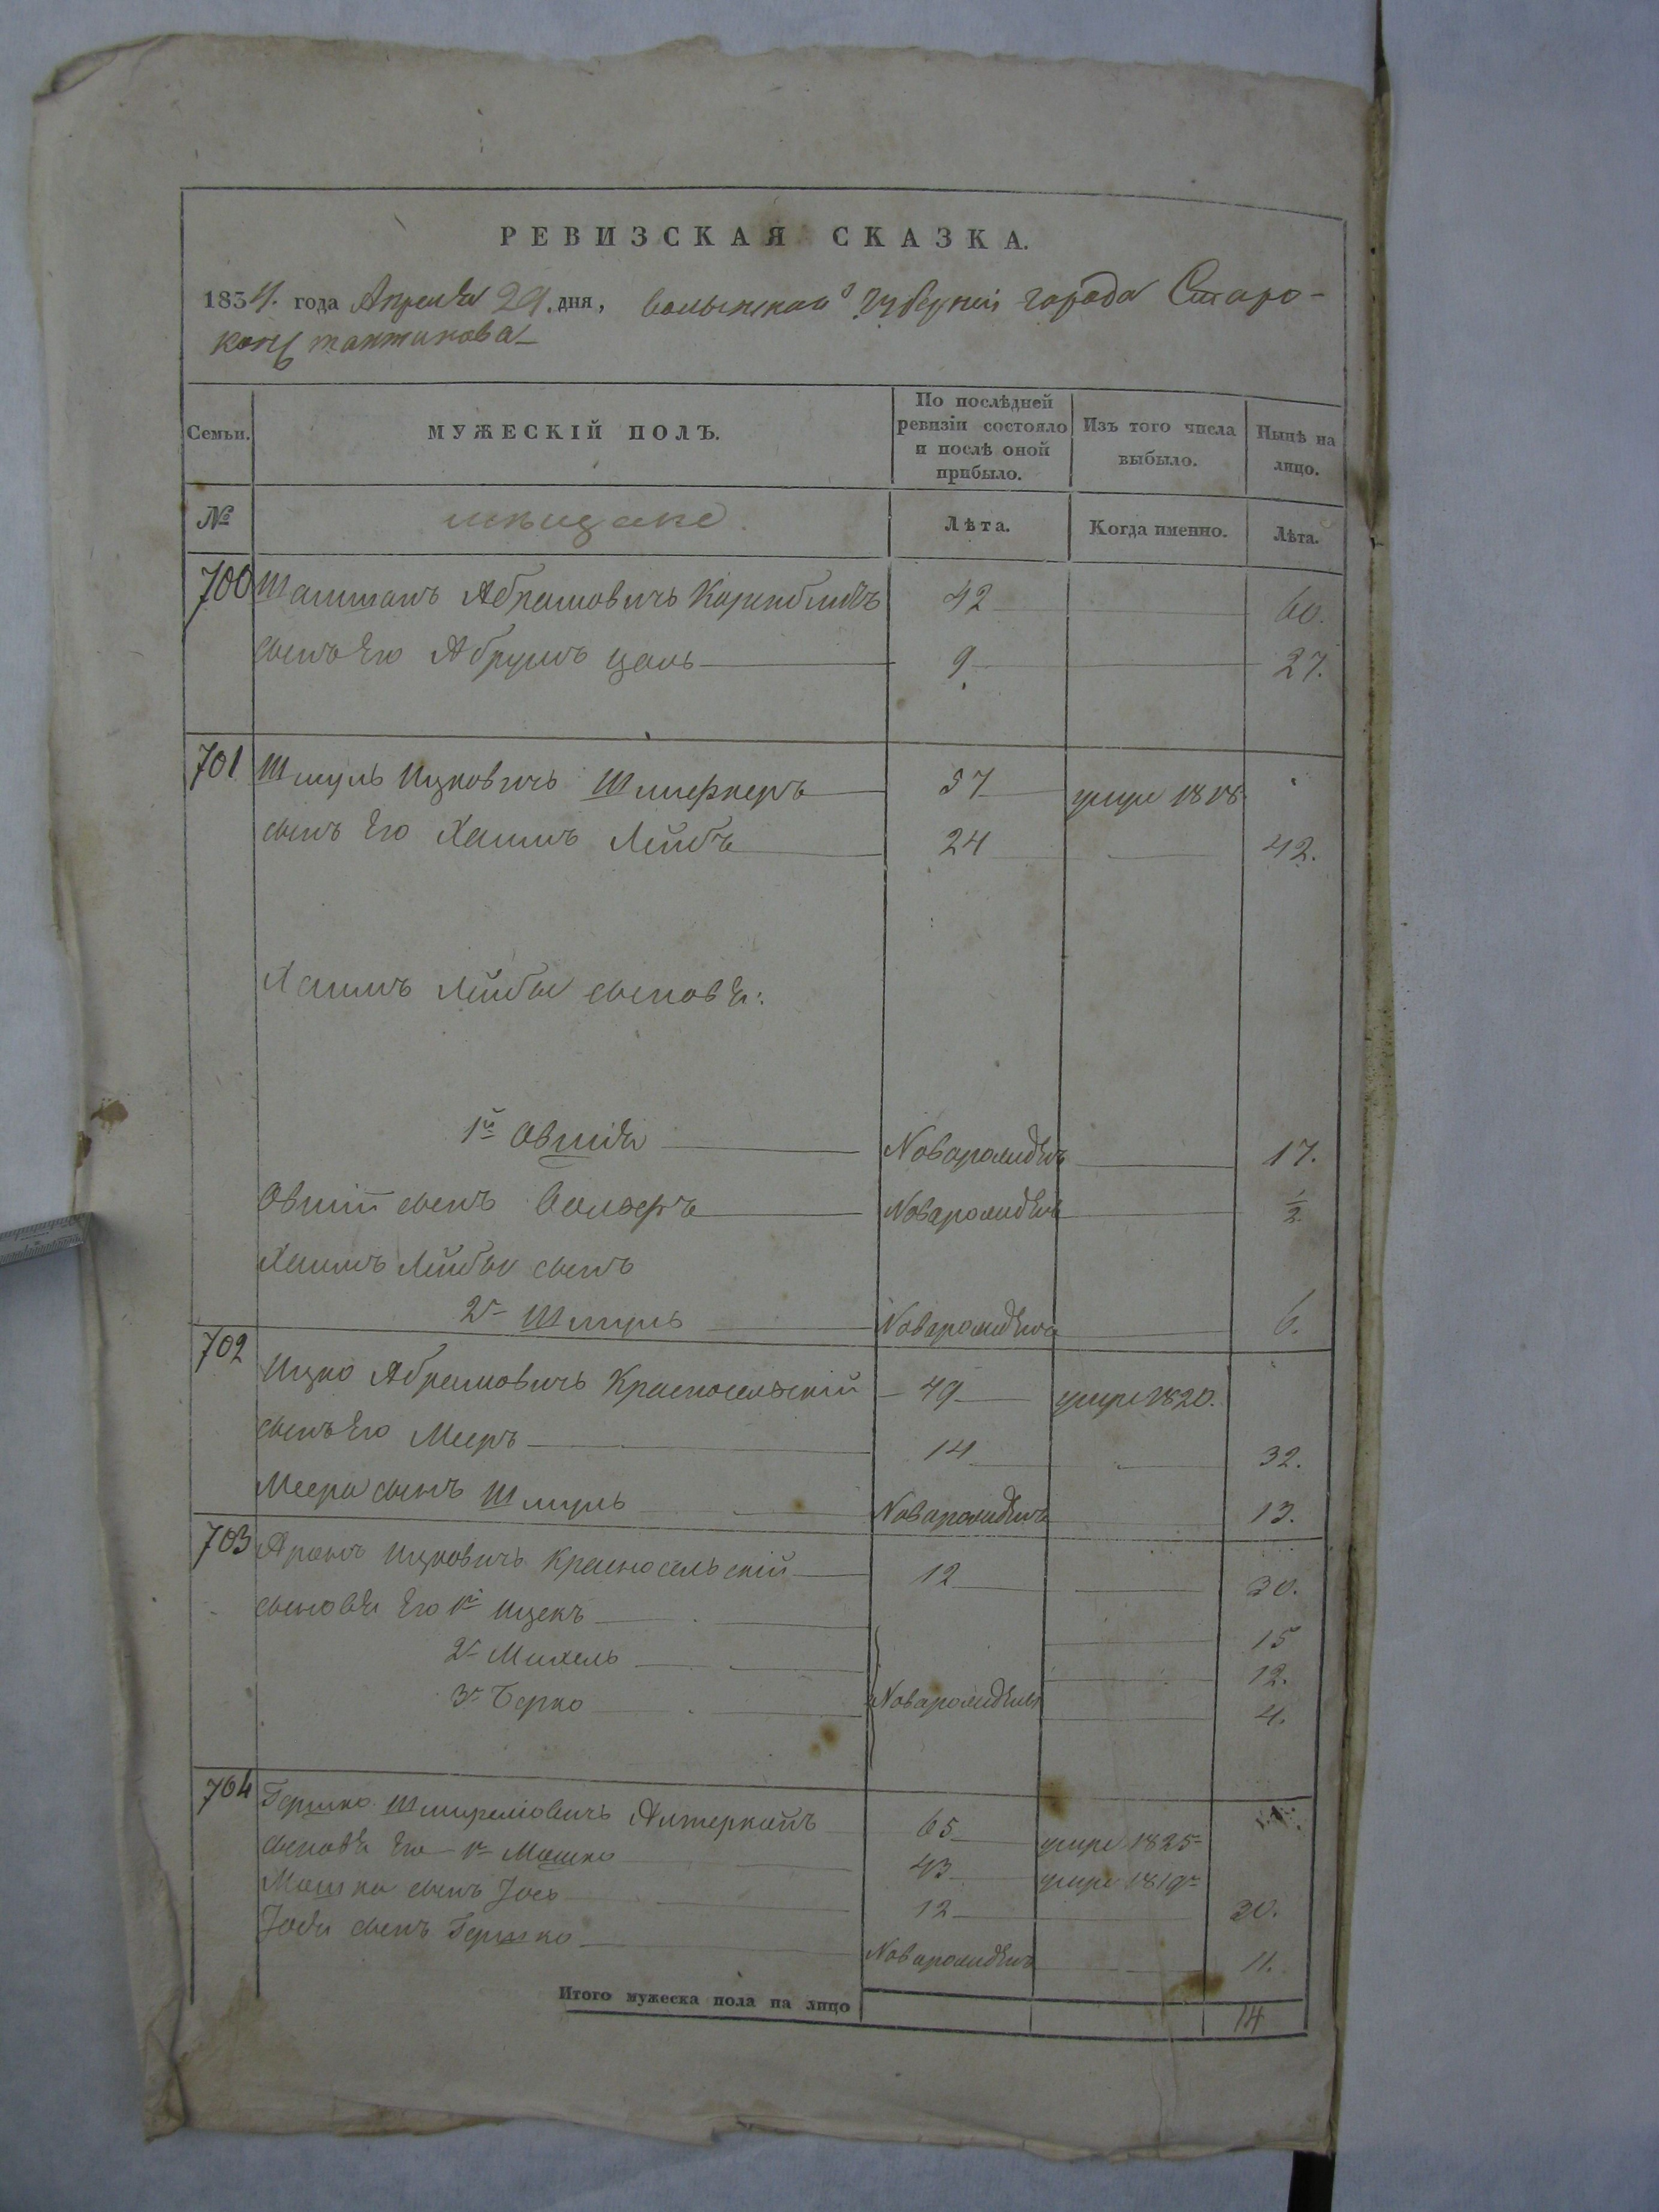 РЕВИЗСКАЯ СКАЗКА.
1834. года Апреля 29. дня, Волынской Губерніи города Старо-
константинова
Семьи. МУЖЕСКІЙ ПОЛЪ. По послѣдней ревизіи состояло и послѣ оной прибыло. Изъ того числа выбыло. Нынѣ на лицо.
№ мѣщане. Лѣта. Когда именно. Лѣта.
700 Абрамовичъ 42 60.
сынъ Его Абрумъ 9 27.
701 Шмуль Ицковичъ 57 умре 1818.
сынъ Его Хаимъ Лейбъ 24 42.
Хаимъ Лейбы сыновья:
1й Овшія Новорожденъ 17.
Овшіи сынъ Новорожденъ ½
Хаимъ Лейбы сынъ
2й Шмуль Новорожденъ 6.
702 Ицко Абрамовичъ Красносельскій 49 умре 1820.
сынъ Его Мееръ 14 32.
Меера сынъ Шмуль Новорожденъ 13.
703 Аронъ Ицковичъ Красносельскій 12 30.
сыновья Его 1й Ицекъ 15
2й Михель 12.
3й Берко Новорожденъ 4.
704 Гершко 65 умре 1825
сыновья Его 1й Мошко 43 умре 1819
Мошка сынъ Іось 12 30.
Іося сынъ Гершко Новорожденъ 11.
Итого мужеска пола на лицо 14